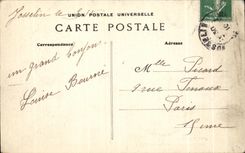 Josselin le
UNION POSTALE UNIVERSELLE
CARTE POSTALE
Correspondance
Adresse
un grand bonjour
Louise Bourné
Mlle Picard
9 rue
Paris